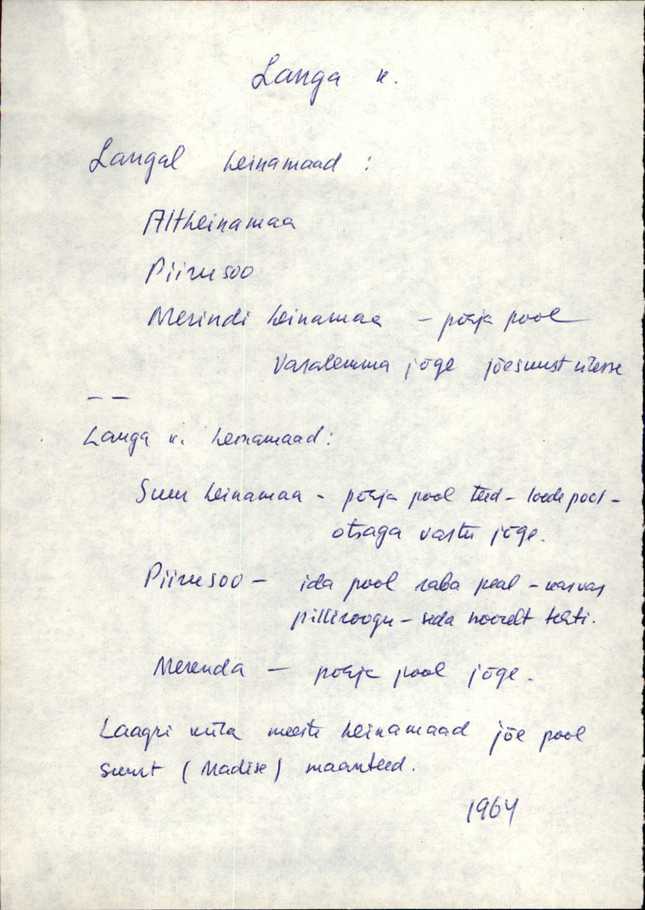 Langa k.
Langal heinamaad :
Altheinamaa
Piirusoo
Merindi heinamaa - põhja pool
Vasalemma jõge jõesuust ülesse
— —
Langa k. heinamaad :
Suur heinamaa - põhja pool teid - loode pool -
otsaga vastu jõge.
Piirusoo - ida pool raba peal - kasvas
pilliroogu - seda noorelt tehti.
Merenda — põhja pool jõge.
Laagri küla meeste heinamaad jõe pool
suurt (Madise) maanteed.
1964